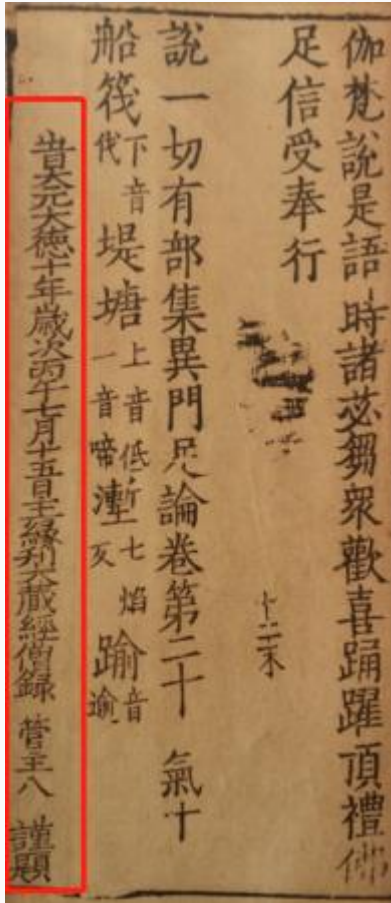 伽梵說是語時諸苾芻衆歡喜踊躍頂禮佛
足信受奉行
說一切有部集異門足論卷第二十 氣十
船筏下音伐堤塘上音低一音啼壍七焰反踰音逾
旹大元大德十年歲次丙午七月十五日主緣刊大藏經僧錄 管主八 謹題